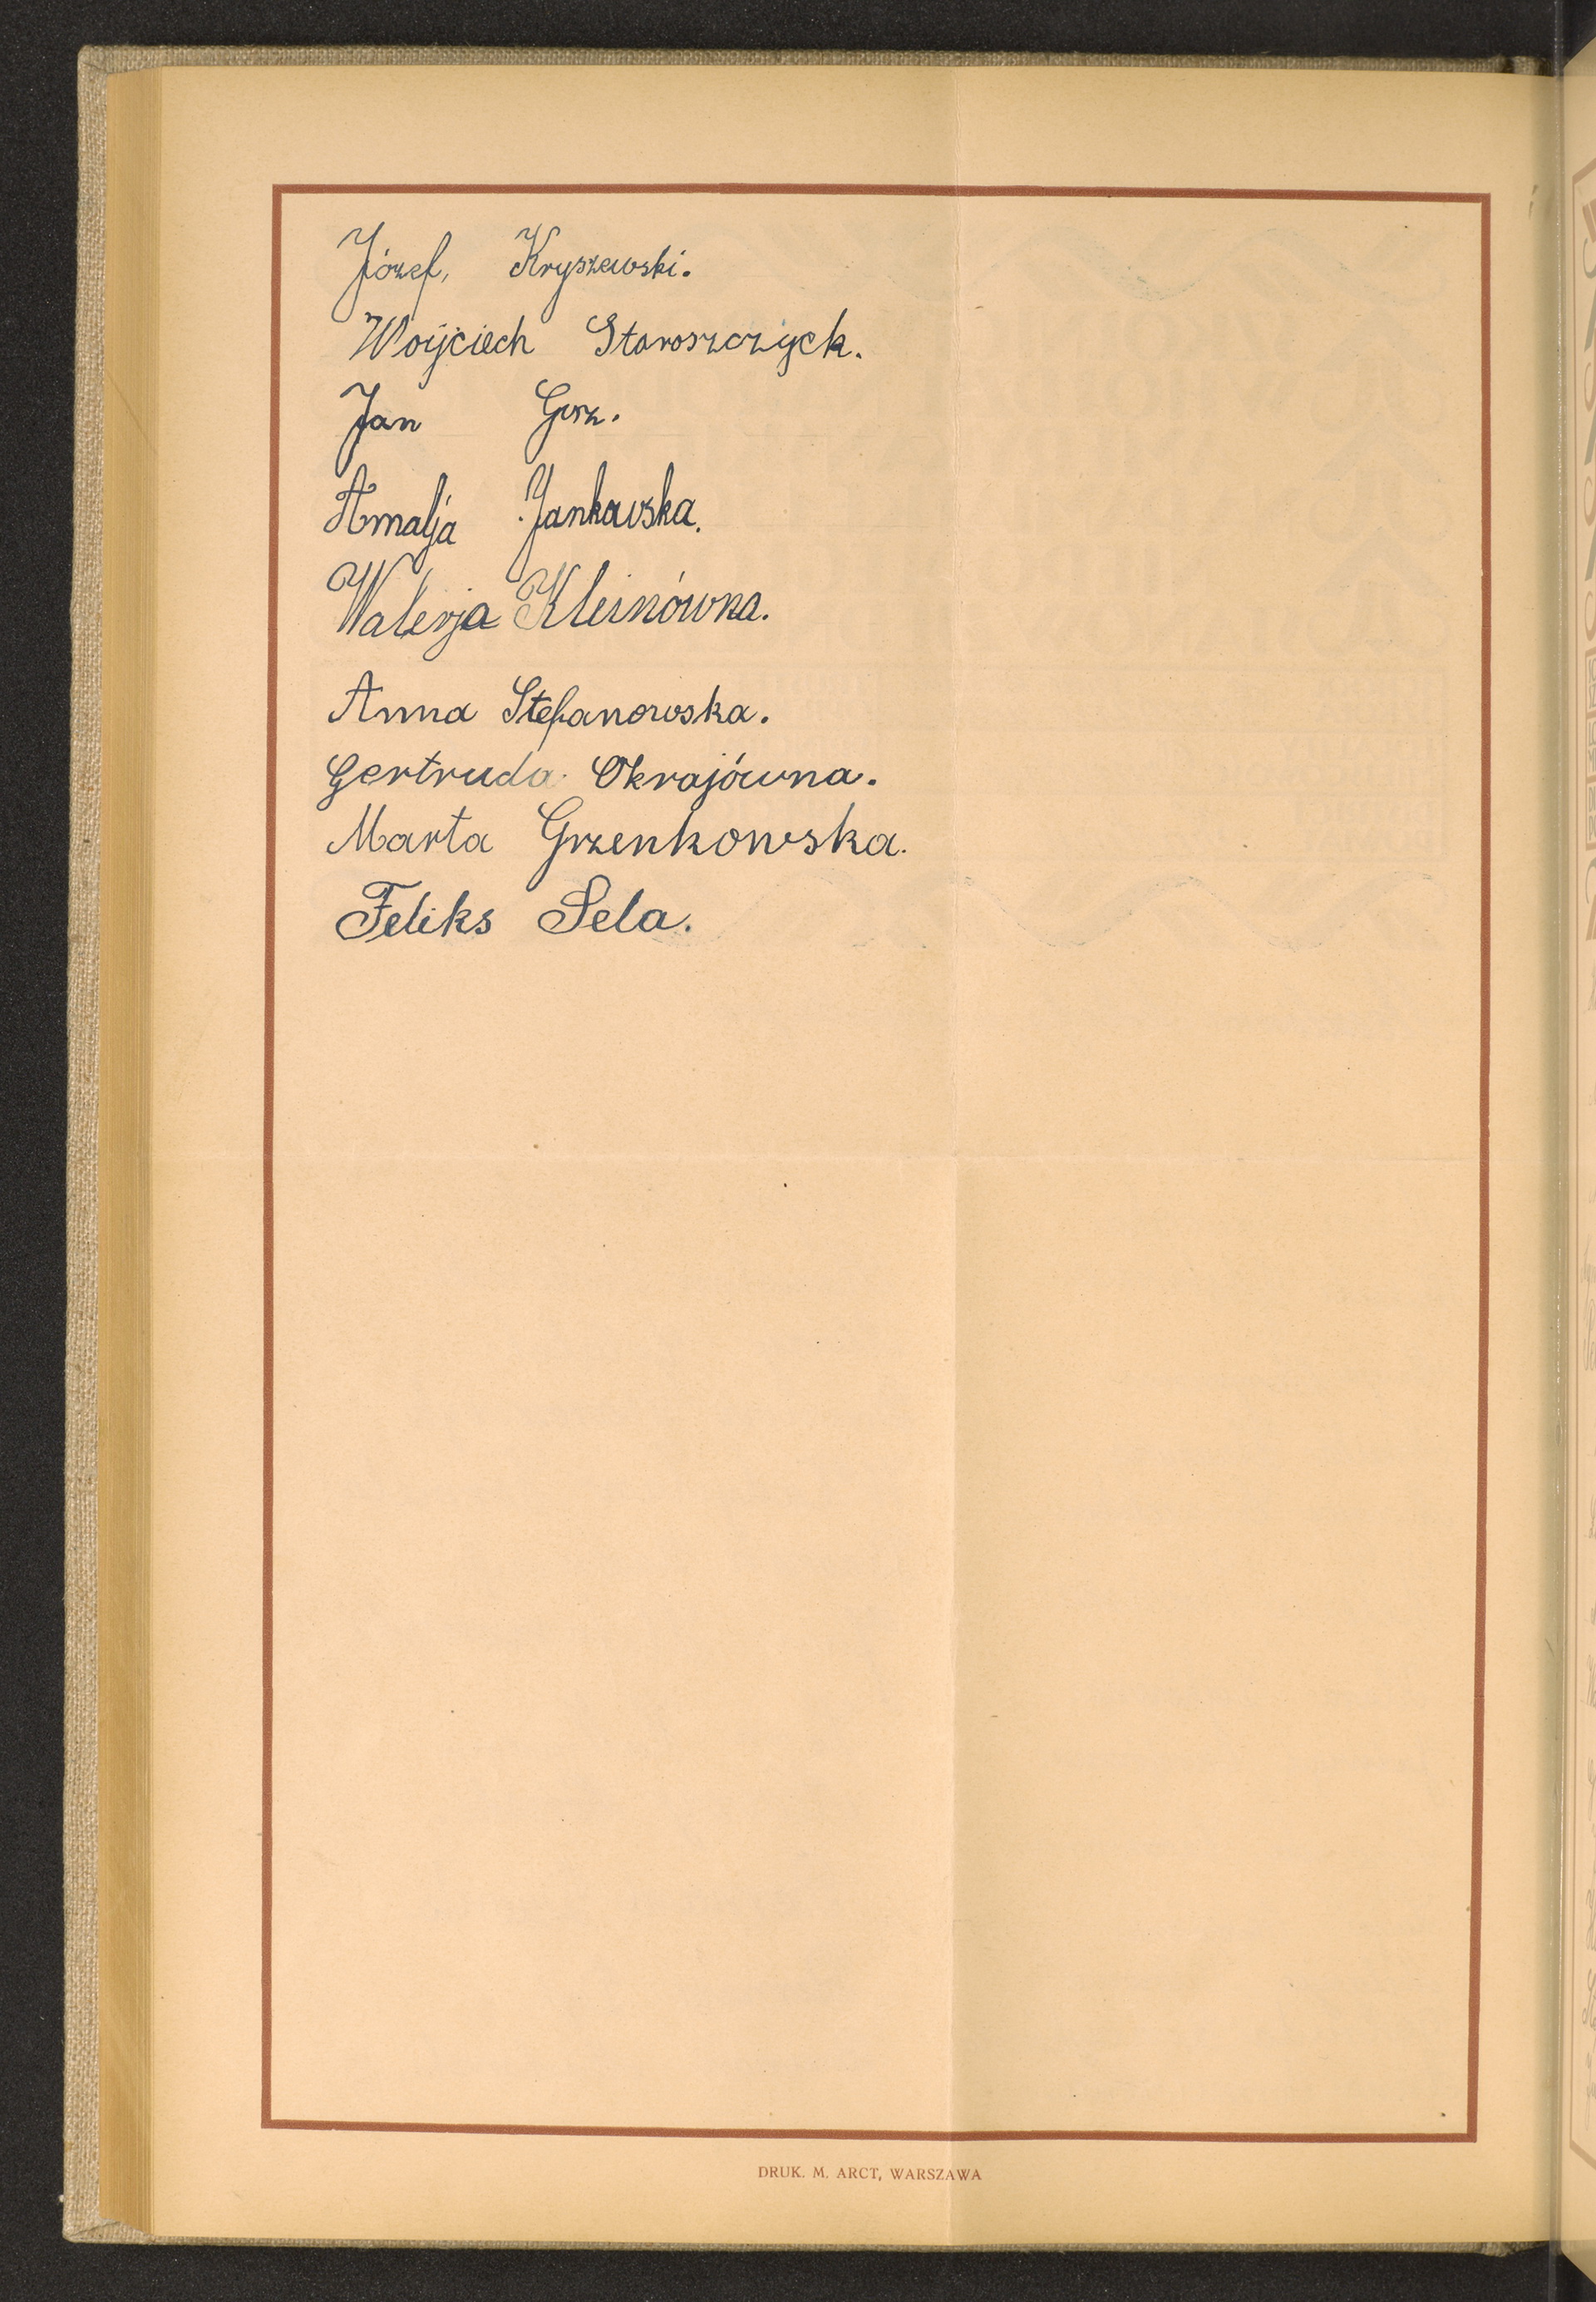 Józef, Kryszewski.
Wojciech Staroszczyck.
Jan Gorz.
Amalja Jankowska.
Walerja Kleinówna.
Anna Stefanowska.
Gertruda Okrajówna.
Marta Grzenkowska.
Feliks Sela.
DRUK. M. ARCT, WARSZAWA